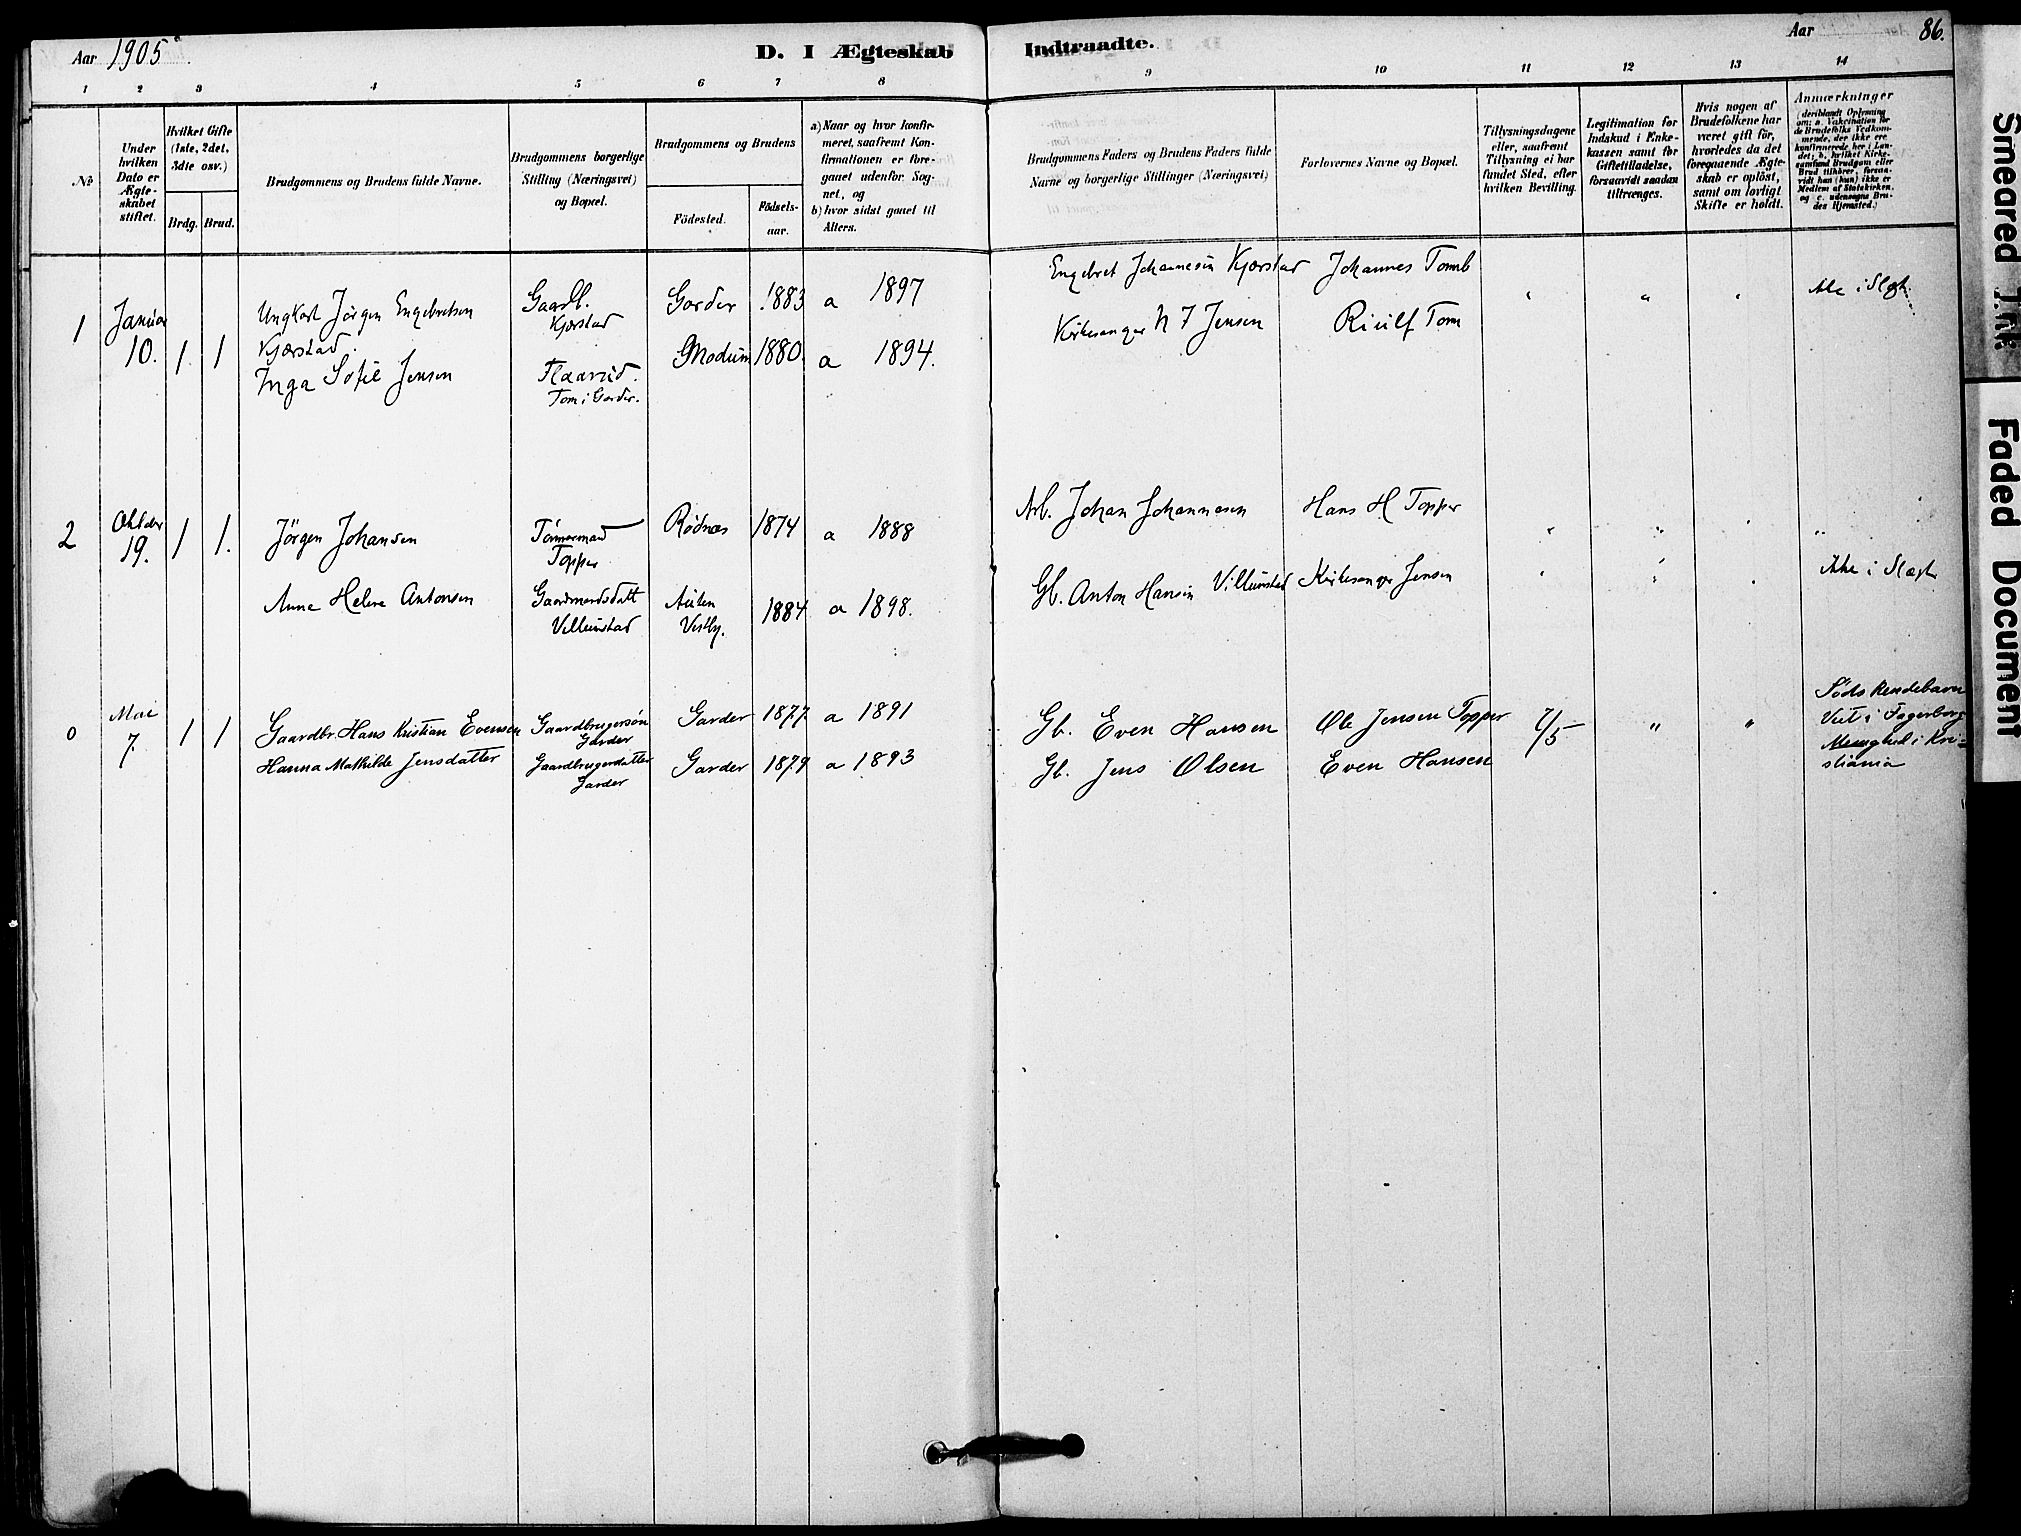 Aar 1905.
D. I Ægteskab Indtraadte.
Aar
86.
1 2 3 4 5 6 7 8 9 10 11 12 13 14
№
Under hvilken Dato er Ægteskabet stiftet.
Hvilket Gifte (1ste, 2det, 3die osv.)
Brdg. Brud.
Brudgommens og Brudens fulde Navne.
Brudgommens borgerlige Stilling (Næringsvei) og Bopæl.
Brudgommens og Brudens
Födested.
Födselsaar.
a) Naar og hvor konfirmeret, saafremt Konfirmationen er foregaaet udenfor Sognet, og
b) hvor sidst gaaet til Alters.
Brudgommens Faders og Brudens Faders fulde Navne og borgerlige Stillinger (Næringsvei)
Forlovernes Navne og Bopæl.
Tillysningsdagene eller, saafremt Tillysning ei har fundet Sted, efter hvilken Bevilling.
Legitimation for Indskud i Enkekassen samt for Giftetilladelse, forsaavidt saadan tiltrænges.
Hvis nogen af Brudefolkene har været gift för, hvorledes da det foregaaende Ægteskab er oplöst, samt om lovligt Skifte er holdt.
Anmærkninger
(deriblandt Oplysning om: a. Vakcination for de Brudefolks Vedkommende, der ikke ere konfirmerede her i Landet; b. hvilket Kirkesamfund Brudgom eller Brud tilhörer, forsaavidt han (hun) ikke er Medlem af Statskirken, og c. udensogns Brudes Hjemsted.)
1 Januar 10. 1 1
Ungkarl Jörgen Engebretsen Kjærstad.
Gaardb. Kjærstad
Garder 1883 a 1897
Engebret Johannesen Kjærstad
Johannes Tomb
" " "
Ikke i Slægt.
Inga Sofie Jensen
Flaarud. Tom i Garder.
Modum 1880. a 1894.
Kirkesanger N J Jensen
Riulf Tom
2 Oktober 19. 1 1.
Jörgen Johansen
Tömmermand Topper
Rödnæs 1874 a 1888
Arb. Johan Johannesen
Hans H. Topper
" " " "
Anne Helene Antonsen
Gaardmandsdatt Villumstad
Vestby. 1884 a 1898.
Gb. Anton Hansen Villumstad
Kirkesanger Jensen
" " "
Ikke i Slægt
0 Mai 7. 1 1
Gaardbr. Hans Kristian Evensen
Gaardbrugersön Garder
Garder 1877 a 1891
Gb. Even Hansen
Ole Jensen Topper
7/5 " "
Söds kendebarn
Viet i Fagerborg
Menighed i Kri-
stiania
Hanna Mathilde Jensdatter
Gaardbrugerdatter Garder
Garder 1879 a 1893
Gb. Jens Olsen
Even Hansen
Smeared Ink
Faded Document